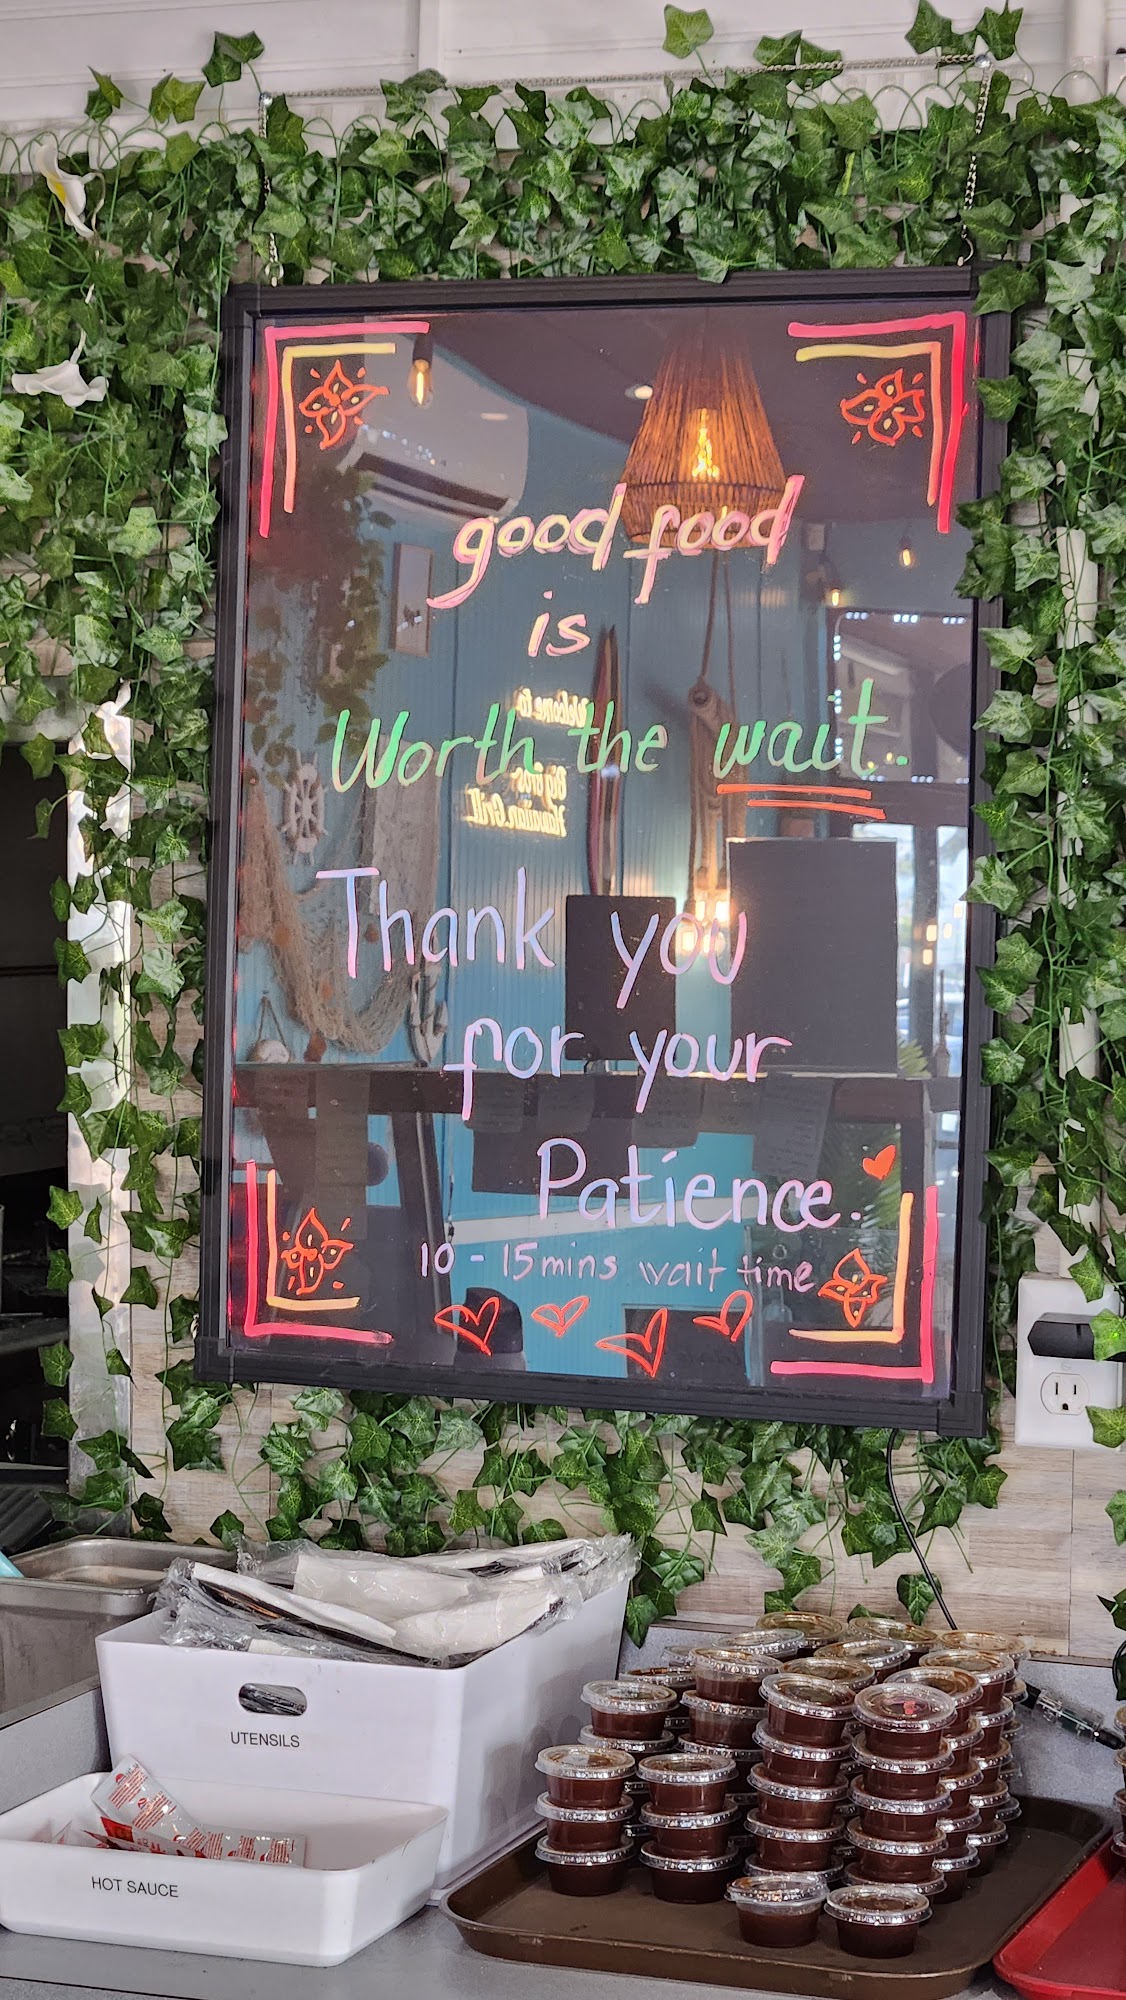 good food
is
Worth the wait.
Welcome to
Big Bros
Hawaiian Grill
Thank you
for your
Patience.
10 - 15 mins wait time
UTENSILS
HOT SAUCE